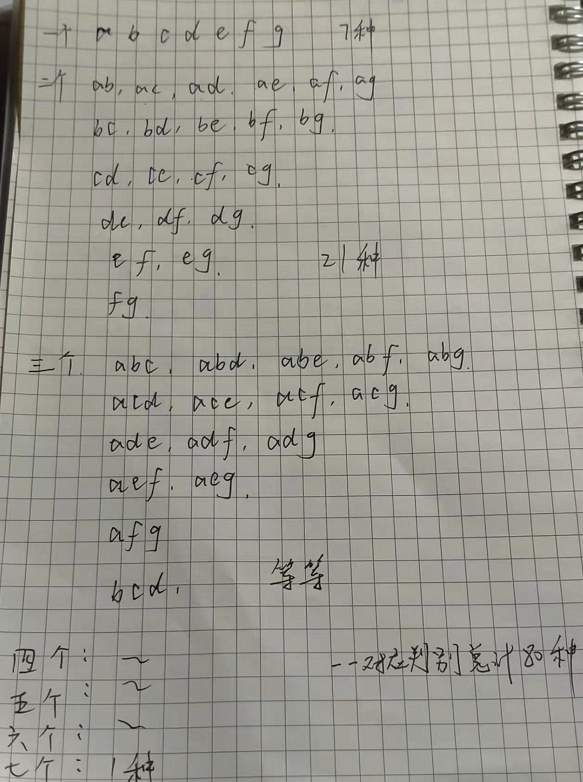 一个 a b c d e f g 7种
二个 ab, ac, ad. ae. af. ag
bc. bd. be. bf. bg.
cd, ce, cf. cg.
de, df. dg.
ef. eg. 21种
fg.
三个 abc. abd. abe. abf. abg.
acd, ace, acf. acg.
ade, adf, adg
aef. aeg.
afg
bcd. 等等
四个: ~ 类别总计80种
五个: ~
六个: ~
七个: 1种